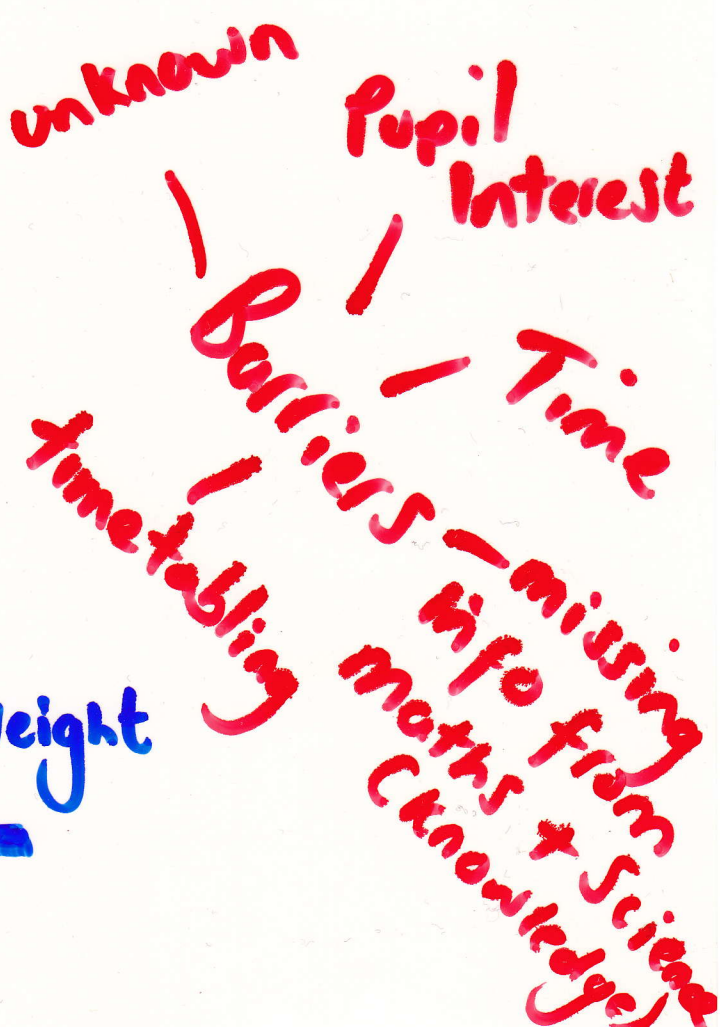 unknown
Pupil
Interest
Barriers
Time
timetabling
missing
info from
maths + Science
(knowledge)
eight